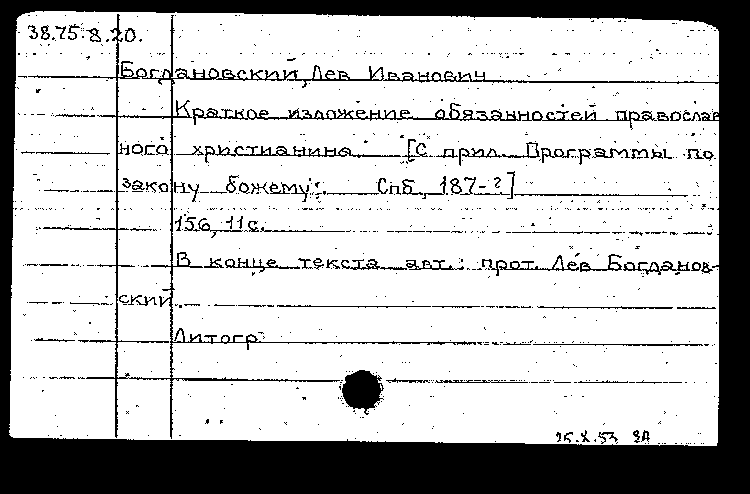 38.75.8.20.
Богдановский, Лев Иванович
Краткое изложение обязанностей православ
ного христианина. [С прил. Программы по
закону божему. Спб., 187-?]
156, 11 с.
В конце текста авт.: прот. Лев Богданов-
ский.
Литогр.